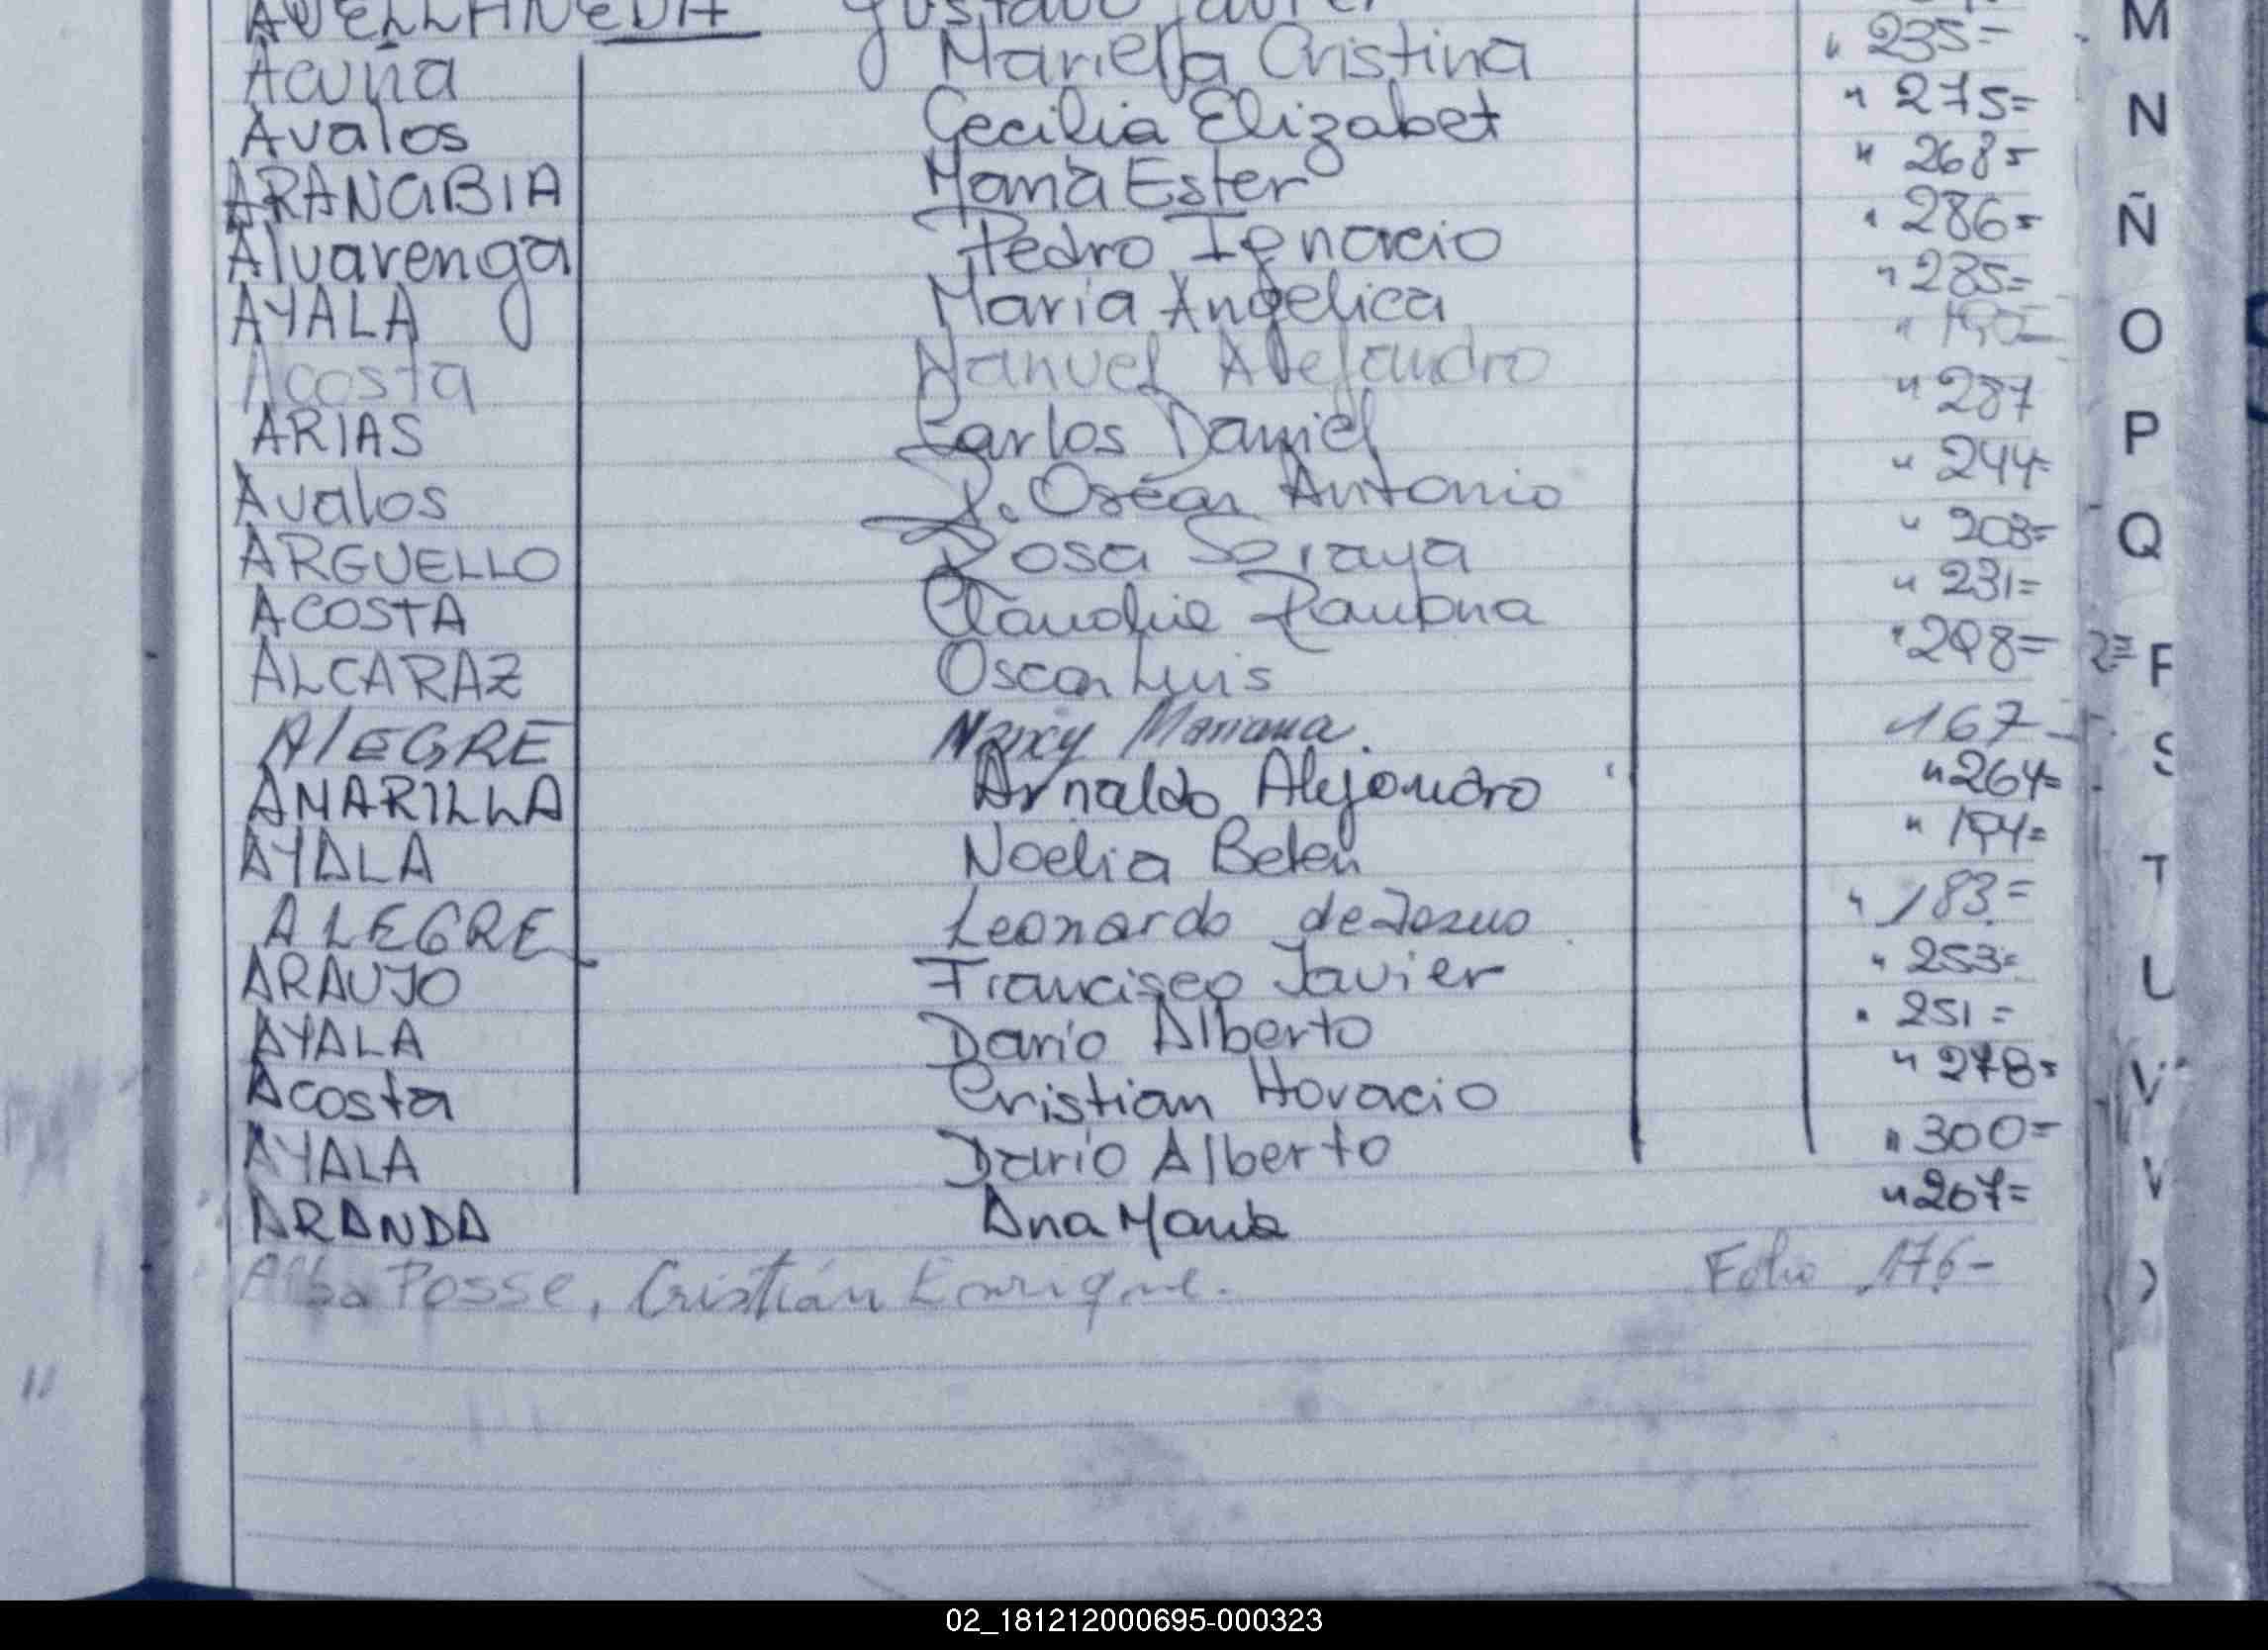 AVELLANEDA Gustavo Javier
Acuña Mariela Cristina " 235=
Avalos Cecilia Elizabet " 275=
ARANGBIA María Ester " 268=
Alvarenga Pedro Ignacio " 286=
AYALA María Angelica " 285=
Acosta Manuel Alejandro "
ARIAS Carlos Daniel " 287
Avalos R. Oscar Antonio " 244=
ARGUELLO Rosa Soraya " 203=
ACOSTA Claudia Ramona " 231=
ALCARAZ Oscar Luis " 298=
AlEGRE Nancy Mariana. 167-
AMARILLA Arnaldo Alejandro " 264=
AYALA Noelia Belen " 194=
ALEGRE Leonardo de Jesus " 183=
ARAUJO Francisco Javier " 253=
AYALA Dario Alberto " 251=
Acosta Cristian Horacio " 278=
AYALA Darío Alberto " 300=
ARANDA Ana María " 267=
Alba Posse, Cristián Enrique. Folio 176-
M
N
Ñ
O
P
Q
S
T
U
V
02_181212000695-000323